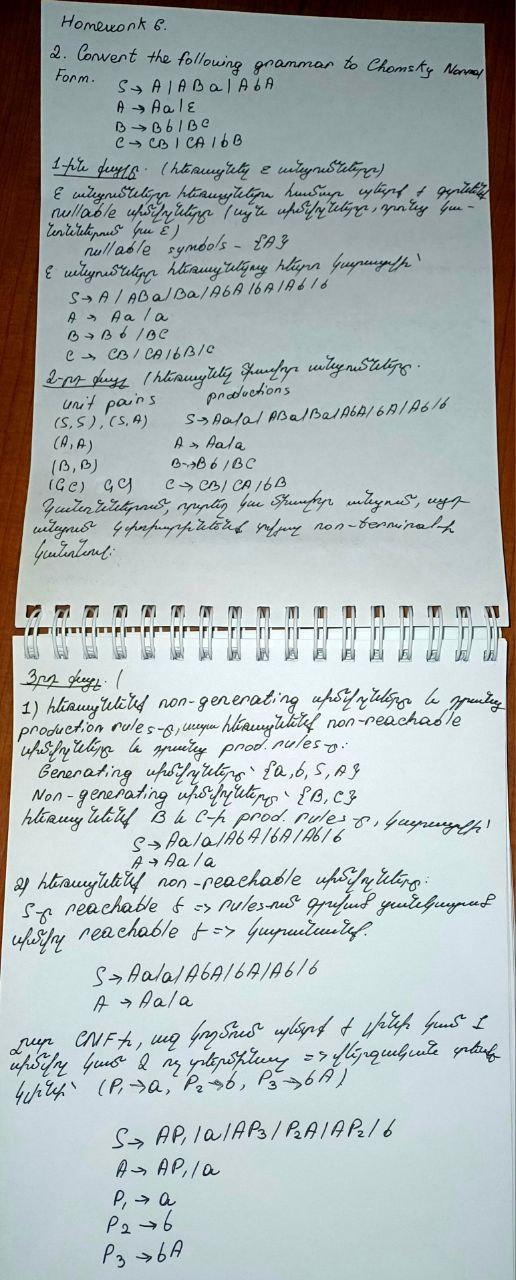 Homework 6.
2. Convert the following grammar to Chomsky Normal
Form.
S → A | ABa | AbA
A → Aa | ε
B → Bb | BC
C → CB | CA | bB
1-ին քայլը. (հեռացնել ε անցումները)
ε անցումները հեռացնելու համար պետք է գտնենք
nullable սիմվոլները (այն սիմվոլները, որոնց կա-
նոններում կա ε)
nullable symbols - {A}
ε անցումները հեռացնելուց հետո կստանանք՝
S → A | ABa | Ba | AbA | bA | Ab | b
A → Aa | a
B → Bb | BC
C → CB | CA | bB | C
2-րդ քայլ (հեռացնել միավոր անցումները.
unit pairs productions
(S,S), (S,A) S → Aa | a | ABa | Ba | AbA | bA | Ab | b
(A,A) A → Aa | a
(B,B) B → Bb | BC
(C,C) C → CB | CA | bB
Կանոններում, որտեղ կա միավոր անցում, այդ
անցումը non-terminal-ի
3-րդ քայլ. (
1) հեռացնենք non-generating սիմվոլները և դրանց
production rules-ը, հետո հեռացնենք non-reachable
սիմվոլները և դրանց prod. rules-ը:
Generating սիմվոլներ՝ {a, b, S, A}
Non-generating սիմվոլներ՝ {B, C}
հեռացնենք B և C-ի prod. rules-ը, կստանանք՝
S → Aa | a | AbA | bA | Ab | b
A → Aa | a
2) հեռացնենք non-reachable սիմվոլները:
S-ը reachable է => rules-ում գրված ցանկացած
սիմվոլ reachable է =>
S → Aa | a | AbA | bA | Ab | b
A → Aa | a
Քանի CNF-ի, աջ կողմում պետք է լինի կամ 1
սիմվոլ կամ 2 ոչ տերմինալ => վերջնական տեսքը
կլինի՝ (P₁ → a, P₂ → b, P₃ → bA)
S → AP₁ | a | AP₃ | P₂A | AP₂ | b
A → AP₁ | a
P₁ → a
P₂ → b
P₃ → bA